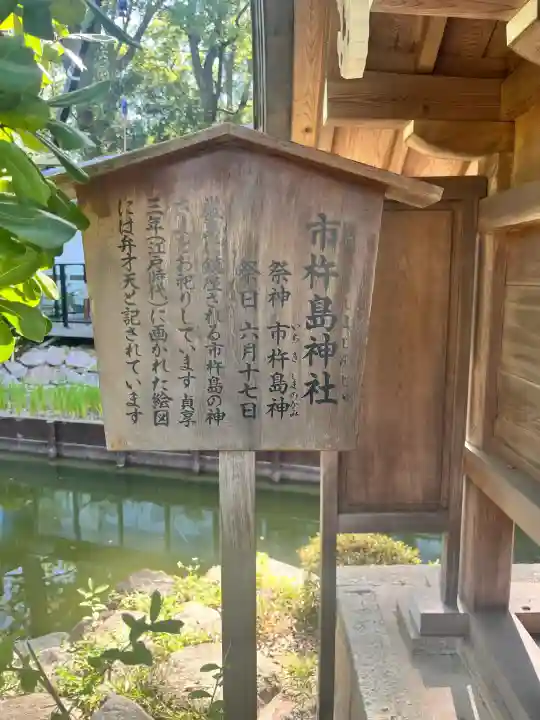 市杵島神社
祭神 市杵島神
いちきしまのかみ
祭日 六月十七日
鎮座される市杵島の神
さまをお祀りしています 貞享
三年(江戸時代)に画かれた絵図
には弁才天と記されています